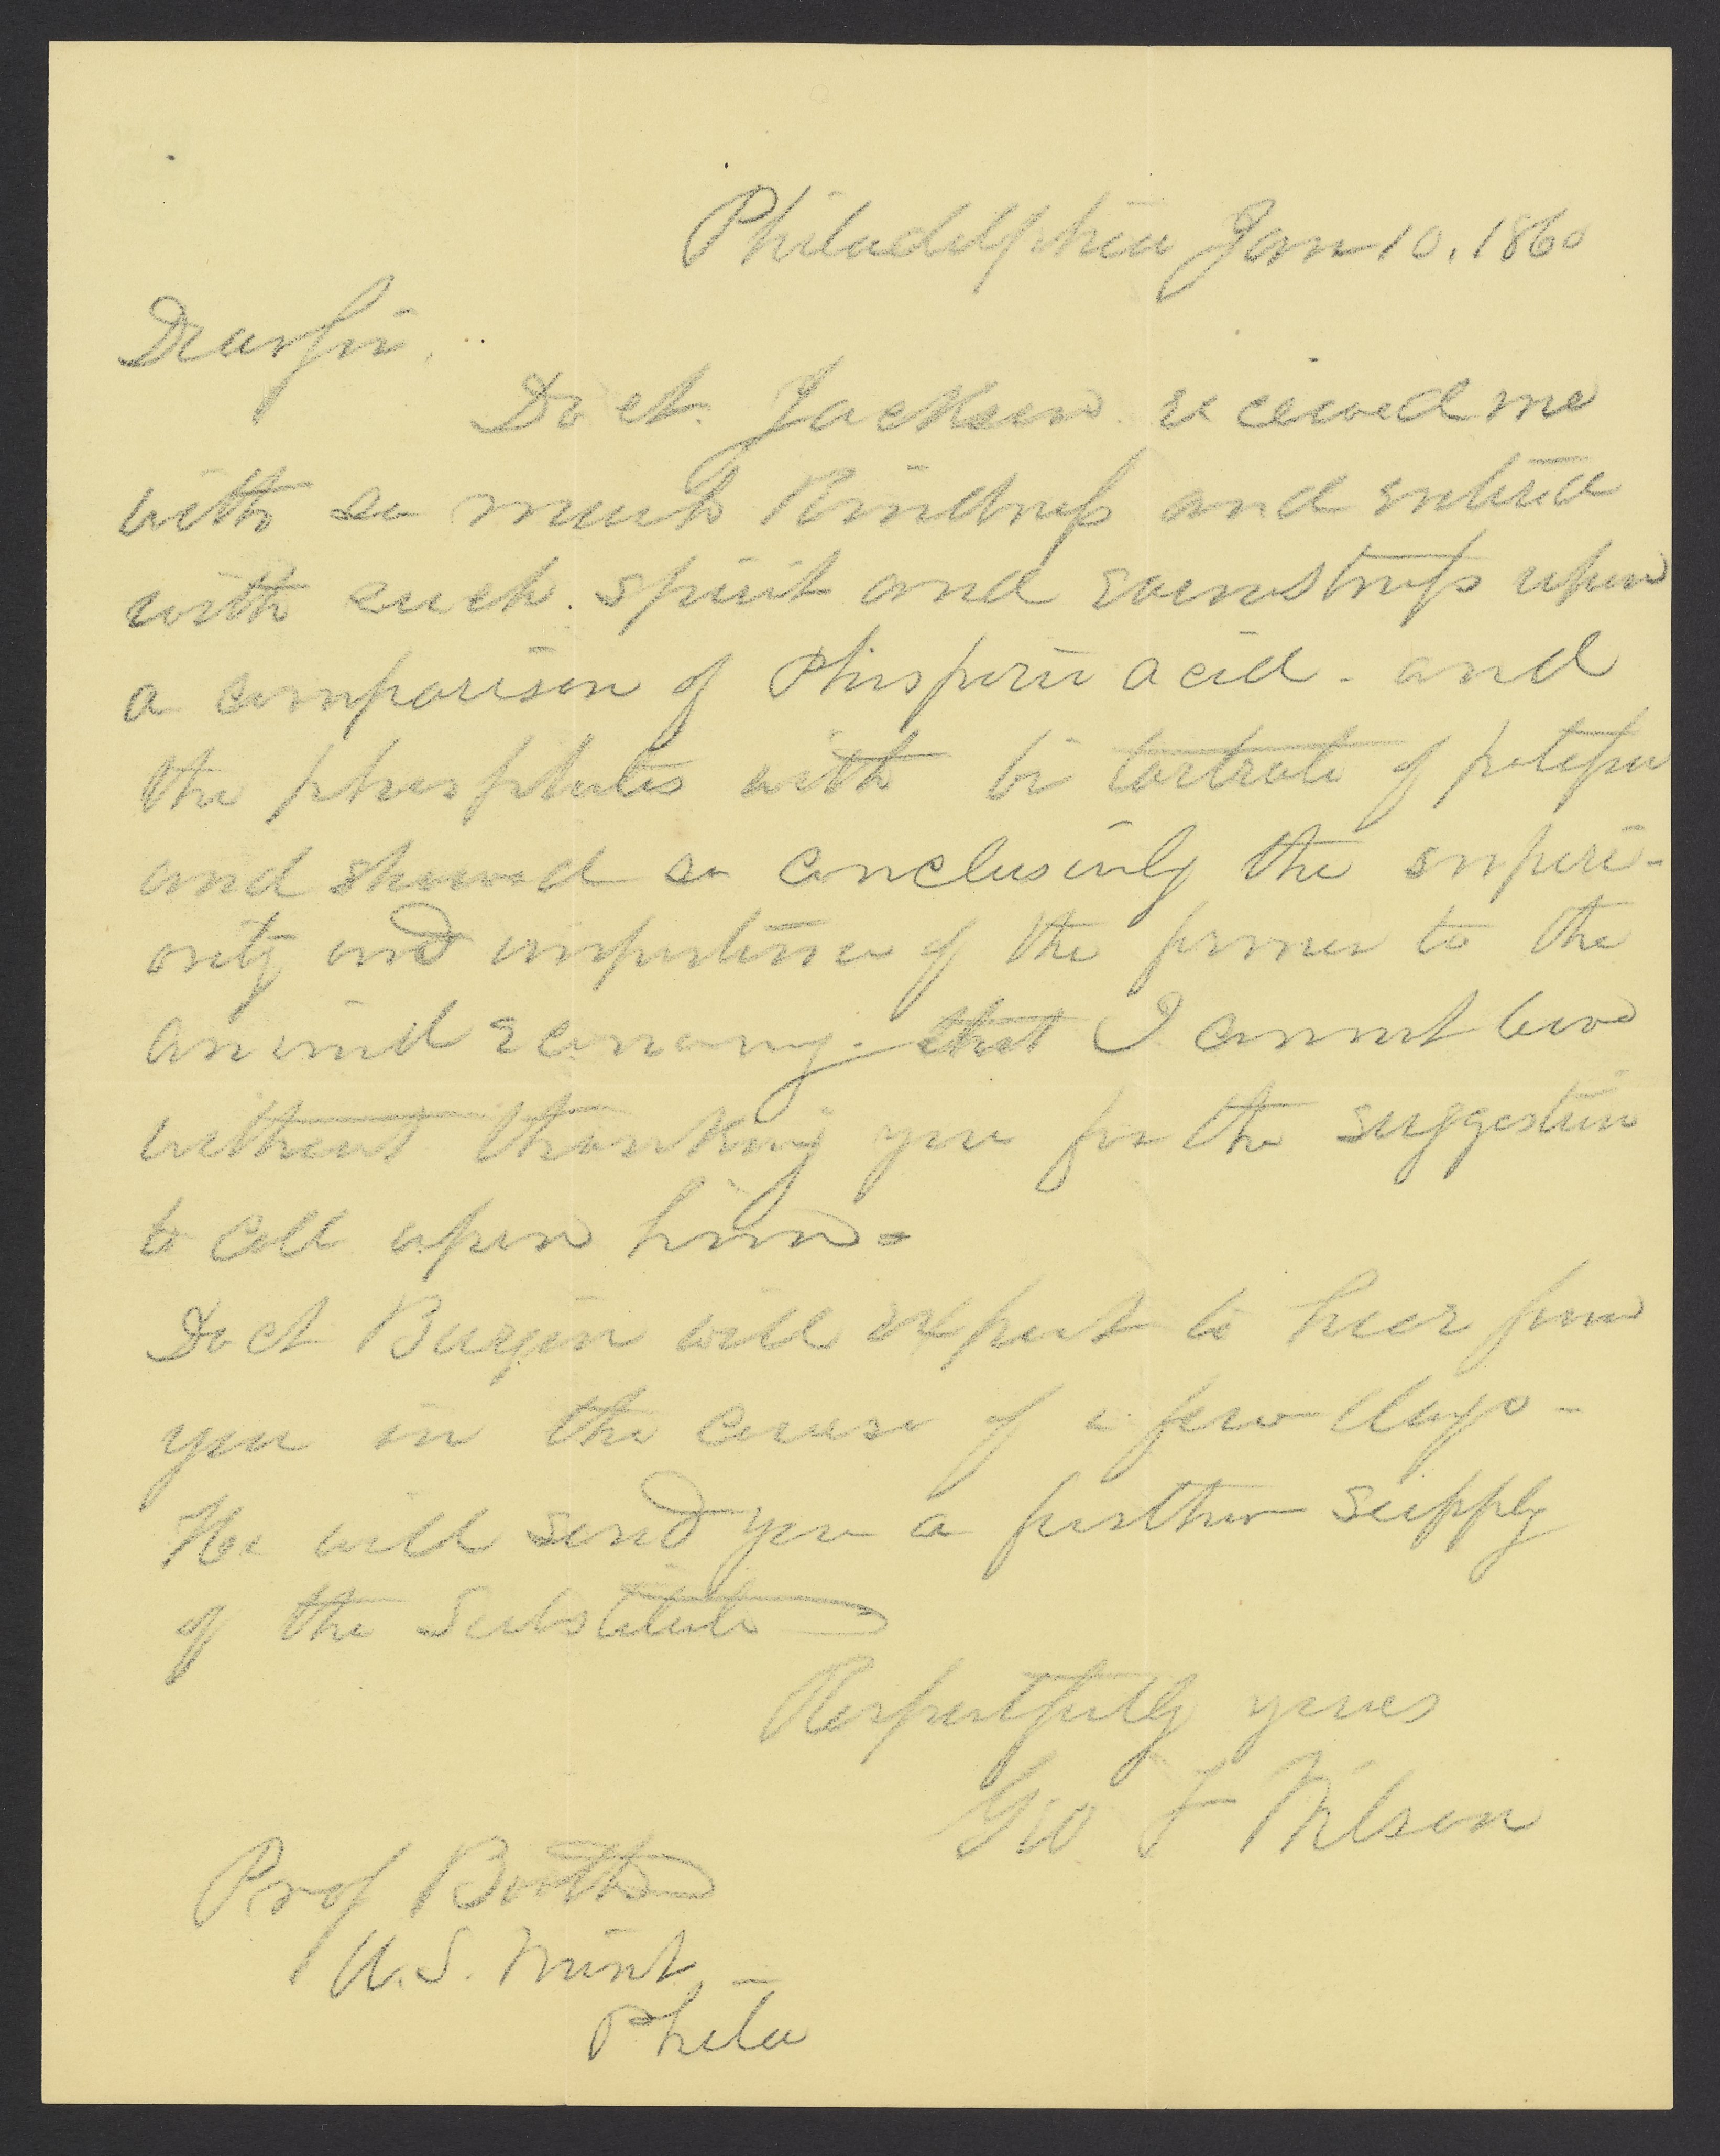 Philadelphia Jan 10, 1860
Dear Sir.
Doct. Jackson received me
with so much Kindness and entered
with such spirit and earnestness upon
a comparison of Phosporic acid - and
the phosphates with bi tartrate of potassa
and showed so conclusively the superi-
ority and importance of the former to the
animal economy. that I cannot leave
without thanking you for the suggestion
to call upon him -
Doct Burgin will expect to hear from
you in the course of a few days -
He will send you a further supply
of the Substitute
Respectfully yours
Geo. F Wilson
Prof Booth
U.S. Mint, -
Phila